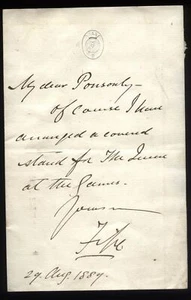 My dear Ponsonby –
of course I have
arranged a covered
stand for The Queen
at the Games.
Yours
Fife
29 Aug. 1889.